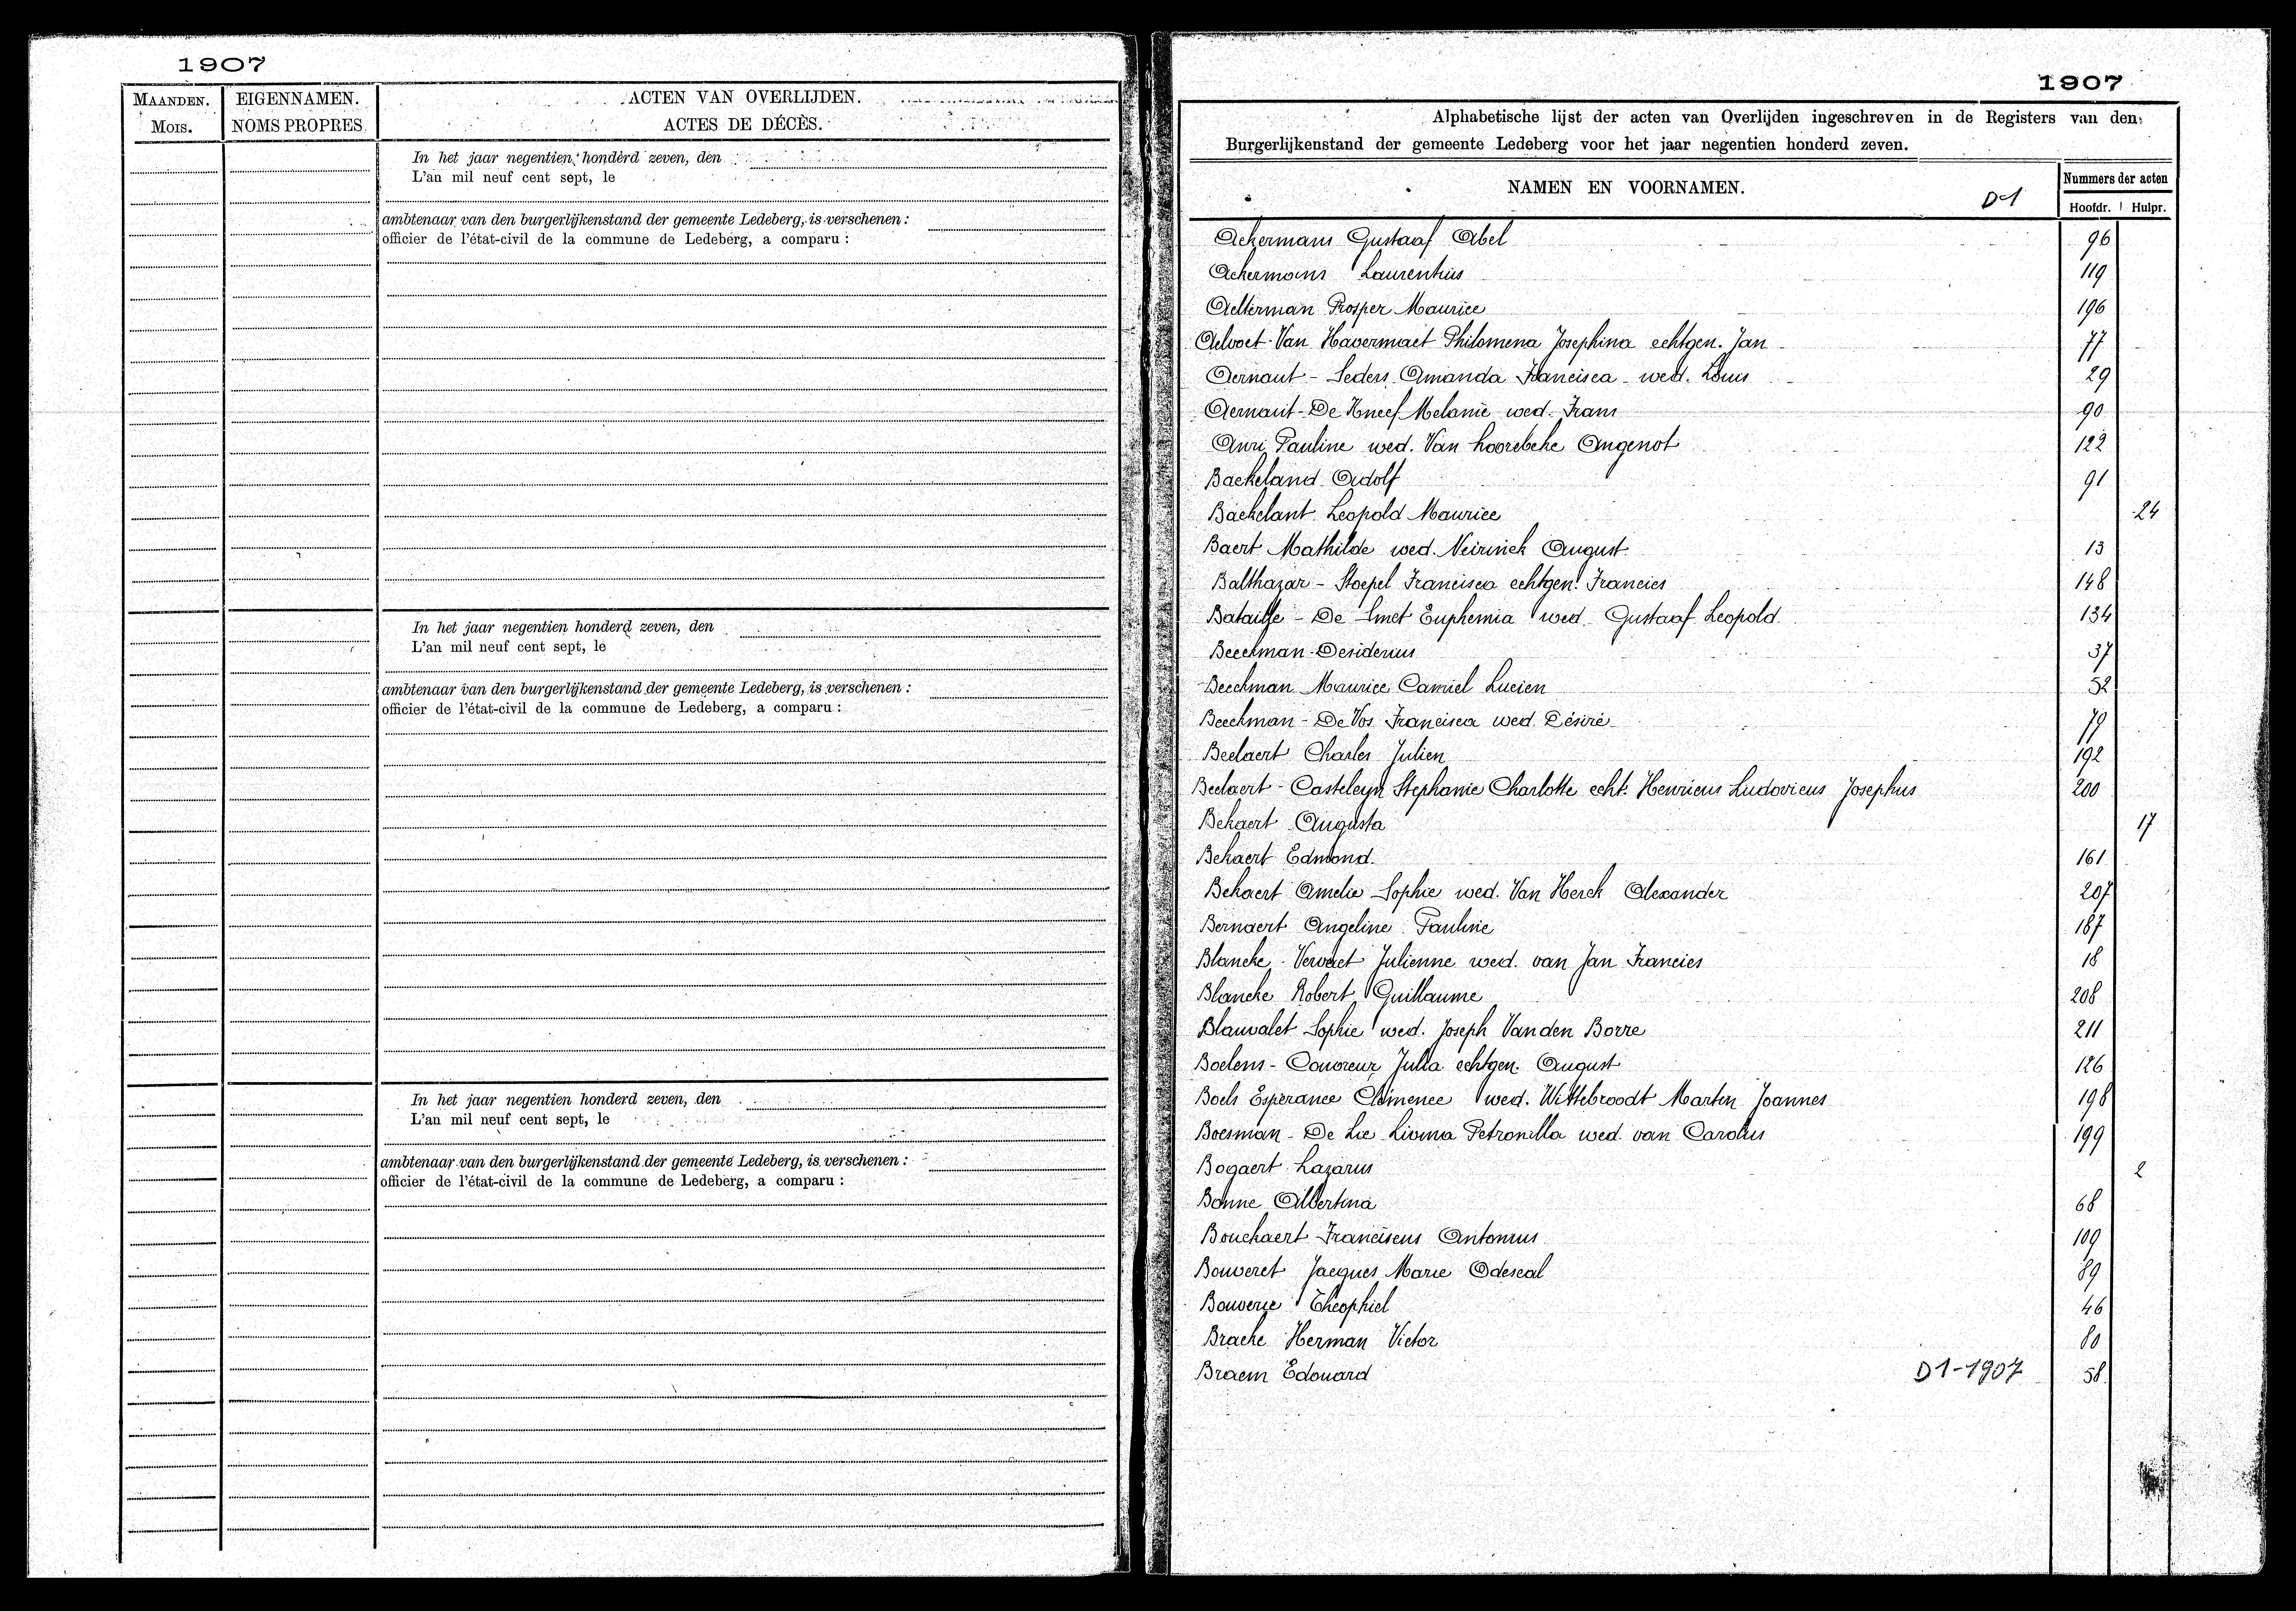 1907
MAANDEN. EIGENNAMEN. ACTEN VAN OVERLIJDEN.
MOIS. NOMS PROPRES. ACTES DE DÉCÈS.
In het jaar negentien honderd zeven, den
L'an mil neuf cent sept, le
ambtenaar van den burgerlijkenstand der gemeente Ledeberg, is verschenen :
officier de l'état-civil de la commune de Ledeberg, a comparu :
In het jaar negentien honderd zeven, den
L'an mil neuf cent sept, le
ambtenaar van den burgerlijkenstand der gemeente Ledeberg, is verschenen :
officier de l'état-civil de la commune de Ledeberg, a comparu :
In het jaar negentien honderd zeven, den
L'an mil neuf cent sept, le
ambtenaar van den burgerlijkenstand der gemeente Ledeberg, is verschenen :
officier de l'état-civil de la commune de Ledeberg, a comparu :
1907
Alphabetische lijst der acten van Overlijden ingeschreven in de Registers van den
Burgerlijkenstand der gemeente Ledeberg voor het jaar negentien honderd zeven.
NAMEN EN VOORNAMEN. D1 Nummers der acten
Hoofdr. Hulpr.
Ackermans Gustaaf Abel 96
Ackermans Laurentius 119
Aelterman Prosper Maurice 196
Aelvoet-Van Havermaet Philomena Josephina echtgen. Jan 77
Aernaut - Seders Amanda Francisca wed. Louis 29
Aernaut - De Kneef Melanie wed. Frans 90
Auri Pauline wed. Van hoorebeke Angenot 122
Backeland Adolf 91
Backelant Leopold Maurice 24
Baert Mathilde wed. Neirinck August 13
Balthazar - Stoepel Francisca echtgen. Francies 148
Bataille - De Smet Euphemia wed. Gustaaf Leopold 134
Beeckman Desiderius 37
Beeckman Maurice Camiel Lucien 52
Beeckman - De Vos Francisca wed. Désiré 79
Beelaert Charles Julien 192
Beelaert - Casteleyn Stephanie Charlotte echt. Henricus Ludovicus Josephus 200
Bekaert Augusta 17
Bekaert Edmond 161
Bekaert Amelie Sophie wed. Van Herck Alexander 207
Bernaert Angeline Pauline 187
Blancke - Vervaet Julienne wed. van Jan Francies 18
Blancke Robert Guillaume 208
Blauwalet Sophie wed. Joseph Vanden Borre 211
Boelens - Couvreur Julia echtgen. August 126
Boels Esperance Clémence wed. Wittebroodt Martin Joannes 198
Boesman - De Lie Livina Petronilla wed. van Carolus 199
Bogaert Lazarus 2
Bonne Albertina 68
Bouckaert Franciscus Antonius 109
Bouveret Jacques Marie Odescal 89
Bouverie Theophiel 46
Bracke Herman Victor 80
Braem Edouard D1-1907 58